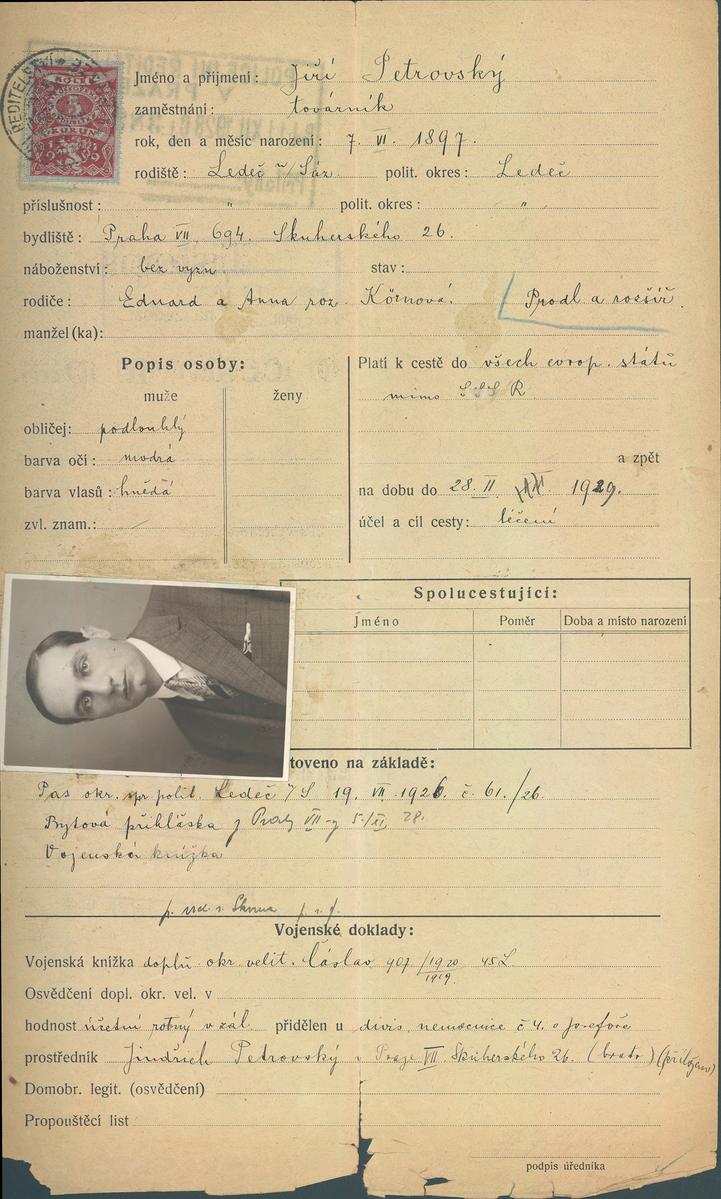 ŘEDITELSTVÍ
KOLEK
5
KORUN
1919
Jméno a příjmení: Jiří Petrovský
zaměstnání: továrník
rok, den a měsíc narození: 7. VI. 1897.
rodiště: Ledeč n/Sáz polit. okres: Ledeč
příslušnost: " polit. okres: "
bydliště: Praha VII, 694. Skuherského 26.
náboženství: bez vyzn stav:
rodiče: Eduard a Anna roz. Prodl a rozšíř.
manžel(ka):
Popis osoby:
muže ženy
obličej: podlouhlý
barva očí: modrá
barva vlasů: hnědá
zvl. znam.: —
Platí k cestě do všech evrop. států
mimo SSSR
a zpět
na dobu do 28. II. 1929.
účel a cíl cesty: léčení
Spolucestující:
Jméno Poměr Doba a místo narození
toveno na základě:
Pas okr. spr. polit. Ledeč 7/S 19. VII. 1926. č. 61./26.
Bytová přihláška z Prahy VII-g 5./XI. 28.
Vojenská knížka
Vojenské doklady:
Vojenská knížka doplň okr. velit. Čáslav 907/1920 1919
Osvědčení dopl. okr. vel. v
hodnost účetní rotný v zál přidělen u divis. nemocnice č 4. v Josefově
prostředník Jindřich Petrovský v Praze VII. Skuherského 26. (bratr)
Domobr. legit. (osvědčení)
Propouštěcí list
podpis úředníka